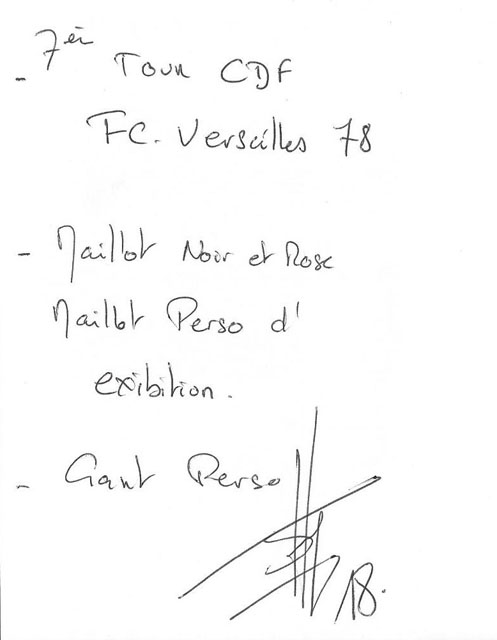 - 7èr Tour CDF
FC. Versailles 78
- Maillot Noir et Rose
Maillot Perso d'
exibition.
- Gant Perso
18.